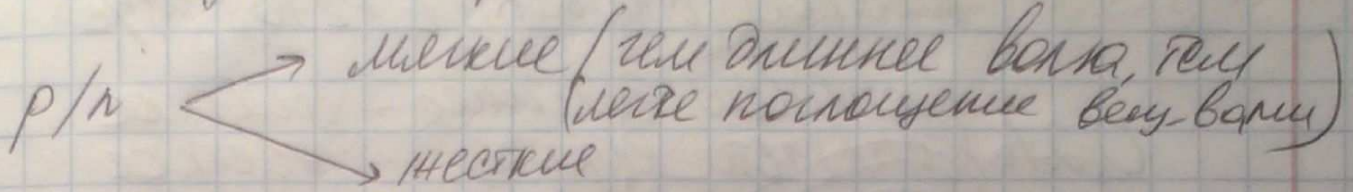 мягкие (чем длиннее волна, тем
р/л
(легче поглощение вещ-вами)
жесткие